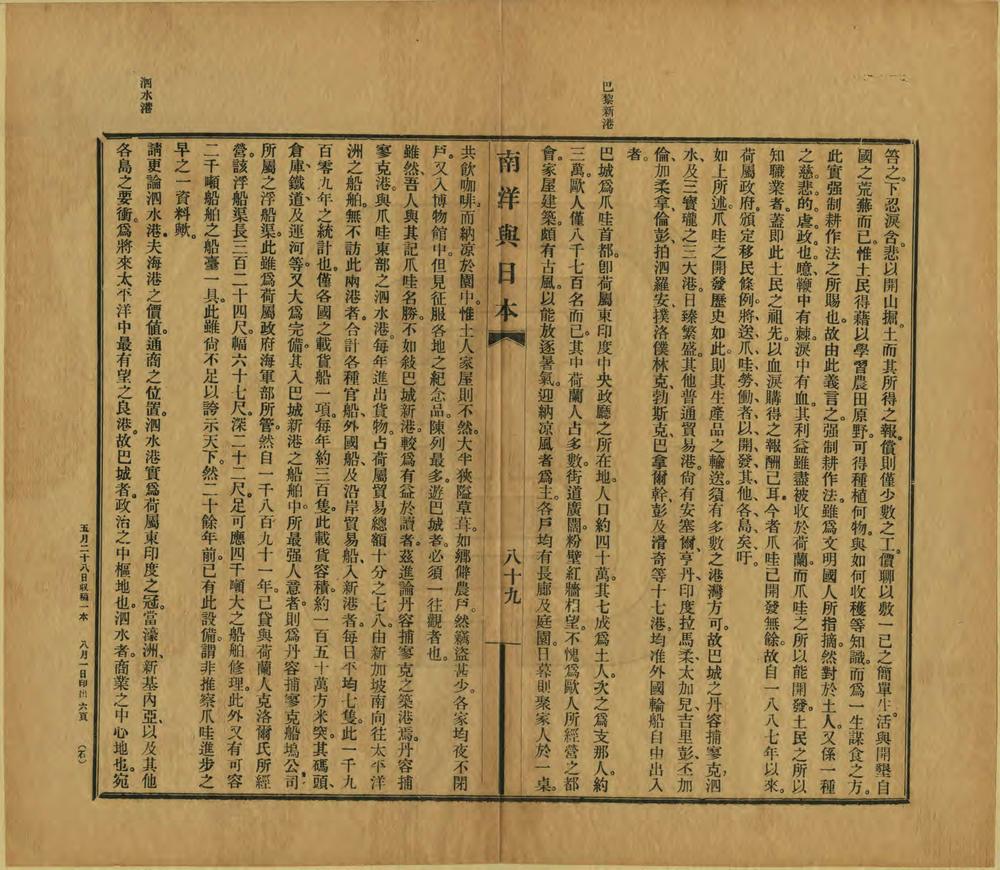 答之下忍淚含悲以開山掘土而其所得之報償則僅少數之工價聊以敷一己之簡單生活與開墾自
國之荒蕪而已惟土民得藉以學習農田原野可得種植何物與如何收穫等知識而為一生謀食之方。
此實强制耕作法之所賜也故由此義言之强制耕作法雖為文明國人所指摘然對於土人又係一種
之慈悲的虐政也噫鞭中有棘淚中有血其利益雖盡被收於荷蘭而爪哇之所以能開發土民之所以
知職業者蓋即此土民之祖先以血淚購得之報酬己耳今者爪哇已開發無餘故自一八八七年以來。
荷屬政府頒定移民條例將送爪哇勞働者以開發其他各島矣吁。
如上所述爪哇之開發歷史如此則其生產品之輸送須有多數之港灣方可故巴城之丹容捕寥克泗
水及三寶瓏之三大港日臻繁盛其他普通貿易港尙有安塞爾亨丹印度拉馬柔太加兒吉里彭丕加
倫加柔拿倫彭拍泗羅安撲洛僕林克勃斯克巴拿爾幹彭及滑奇等十七港均准外國輪船自由出入
者。
巴黎新港
巴城為爪哇首都卽荷屬東印度中央政廳之所在地人口約四十萬其七成為土人次之為支那人約
三萬歐人僅八千七百名而已其中荷蘭人占多數街道廣闊粉壁紅牆相望不愧為歐人所經營之都
會家屋建築頗有古風以能放逐暑氣迎納凉風者為主各戶均有長廊及庭園日暮則聚家人於一桌。
南洋與日本
八十九
共飲咖啡而納凉於園中惟土人家屋則不然大半狹隘草葺如鄉僻農戶然竊盜甚少各家均夜不閉
戶又入博物館中但見征服各地之紀念品陳列最多遊巴城者必須一往觀者也。
雖然吾人與其記爪哇名勝不如敍巴城新港較為有益於讀者茲進論丹容捕寥克之築港焉丹容捕
寥克港與爪哇東部之泗水港每年進出貨物占荷屬貿易總額十分之七八由新加坡南向往太平洋
洲之船舶無不訪此兩港者合計各種官船外國船及沿岸貿易船入新港者每日平均七隻此一千九
百零九年之統計也僅各國之載貨船一項每年約三百隻此載貨容積約一百五十萬方米突其碼頭、
倉庫鐵道及運河等又大為完備其入巴城新港之船舶中所最强人意者則為丹容捕寥克船塢公司
所屬之浮船渠此雖為荷屬政府海軍部所管然自一千八百九十一年已貸與荷蘭人克洛爾氏所經
營該浮船渠長三百二十四尺幅六十七尺深二十二尺足可應四千噸大之船舶修理此外又有可容
二千噸船舶之船臺一具此雖尙不足以誇示天下然二十餘年前已有此設備謂非推察爪哇進步之
早之一資料歟。
泗水港
請更論泗水港夫海港之價値通商之位置泗水港實為荷屬東印度之冠當濠洲新基內亞以及其他
各島之要衝為將來太平洋中最有望之良港故巴城者政治之中樞地也泗水者商業之中心地也宛
五月二十八日収稿一本 八月一日印出 六頁 (石)